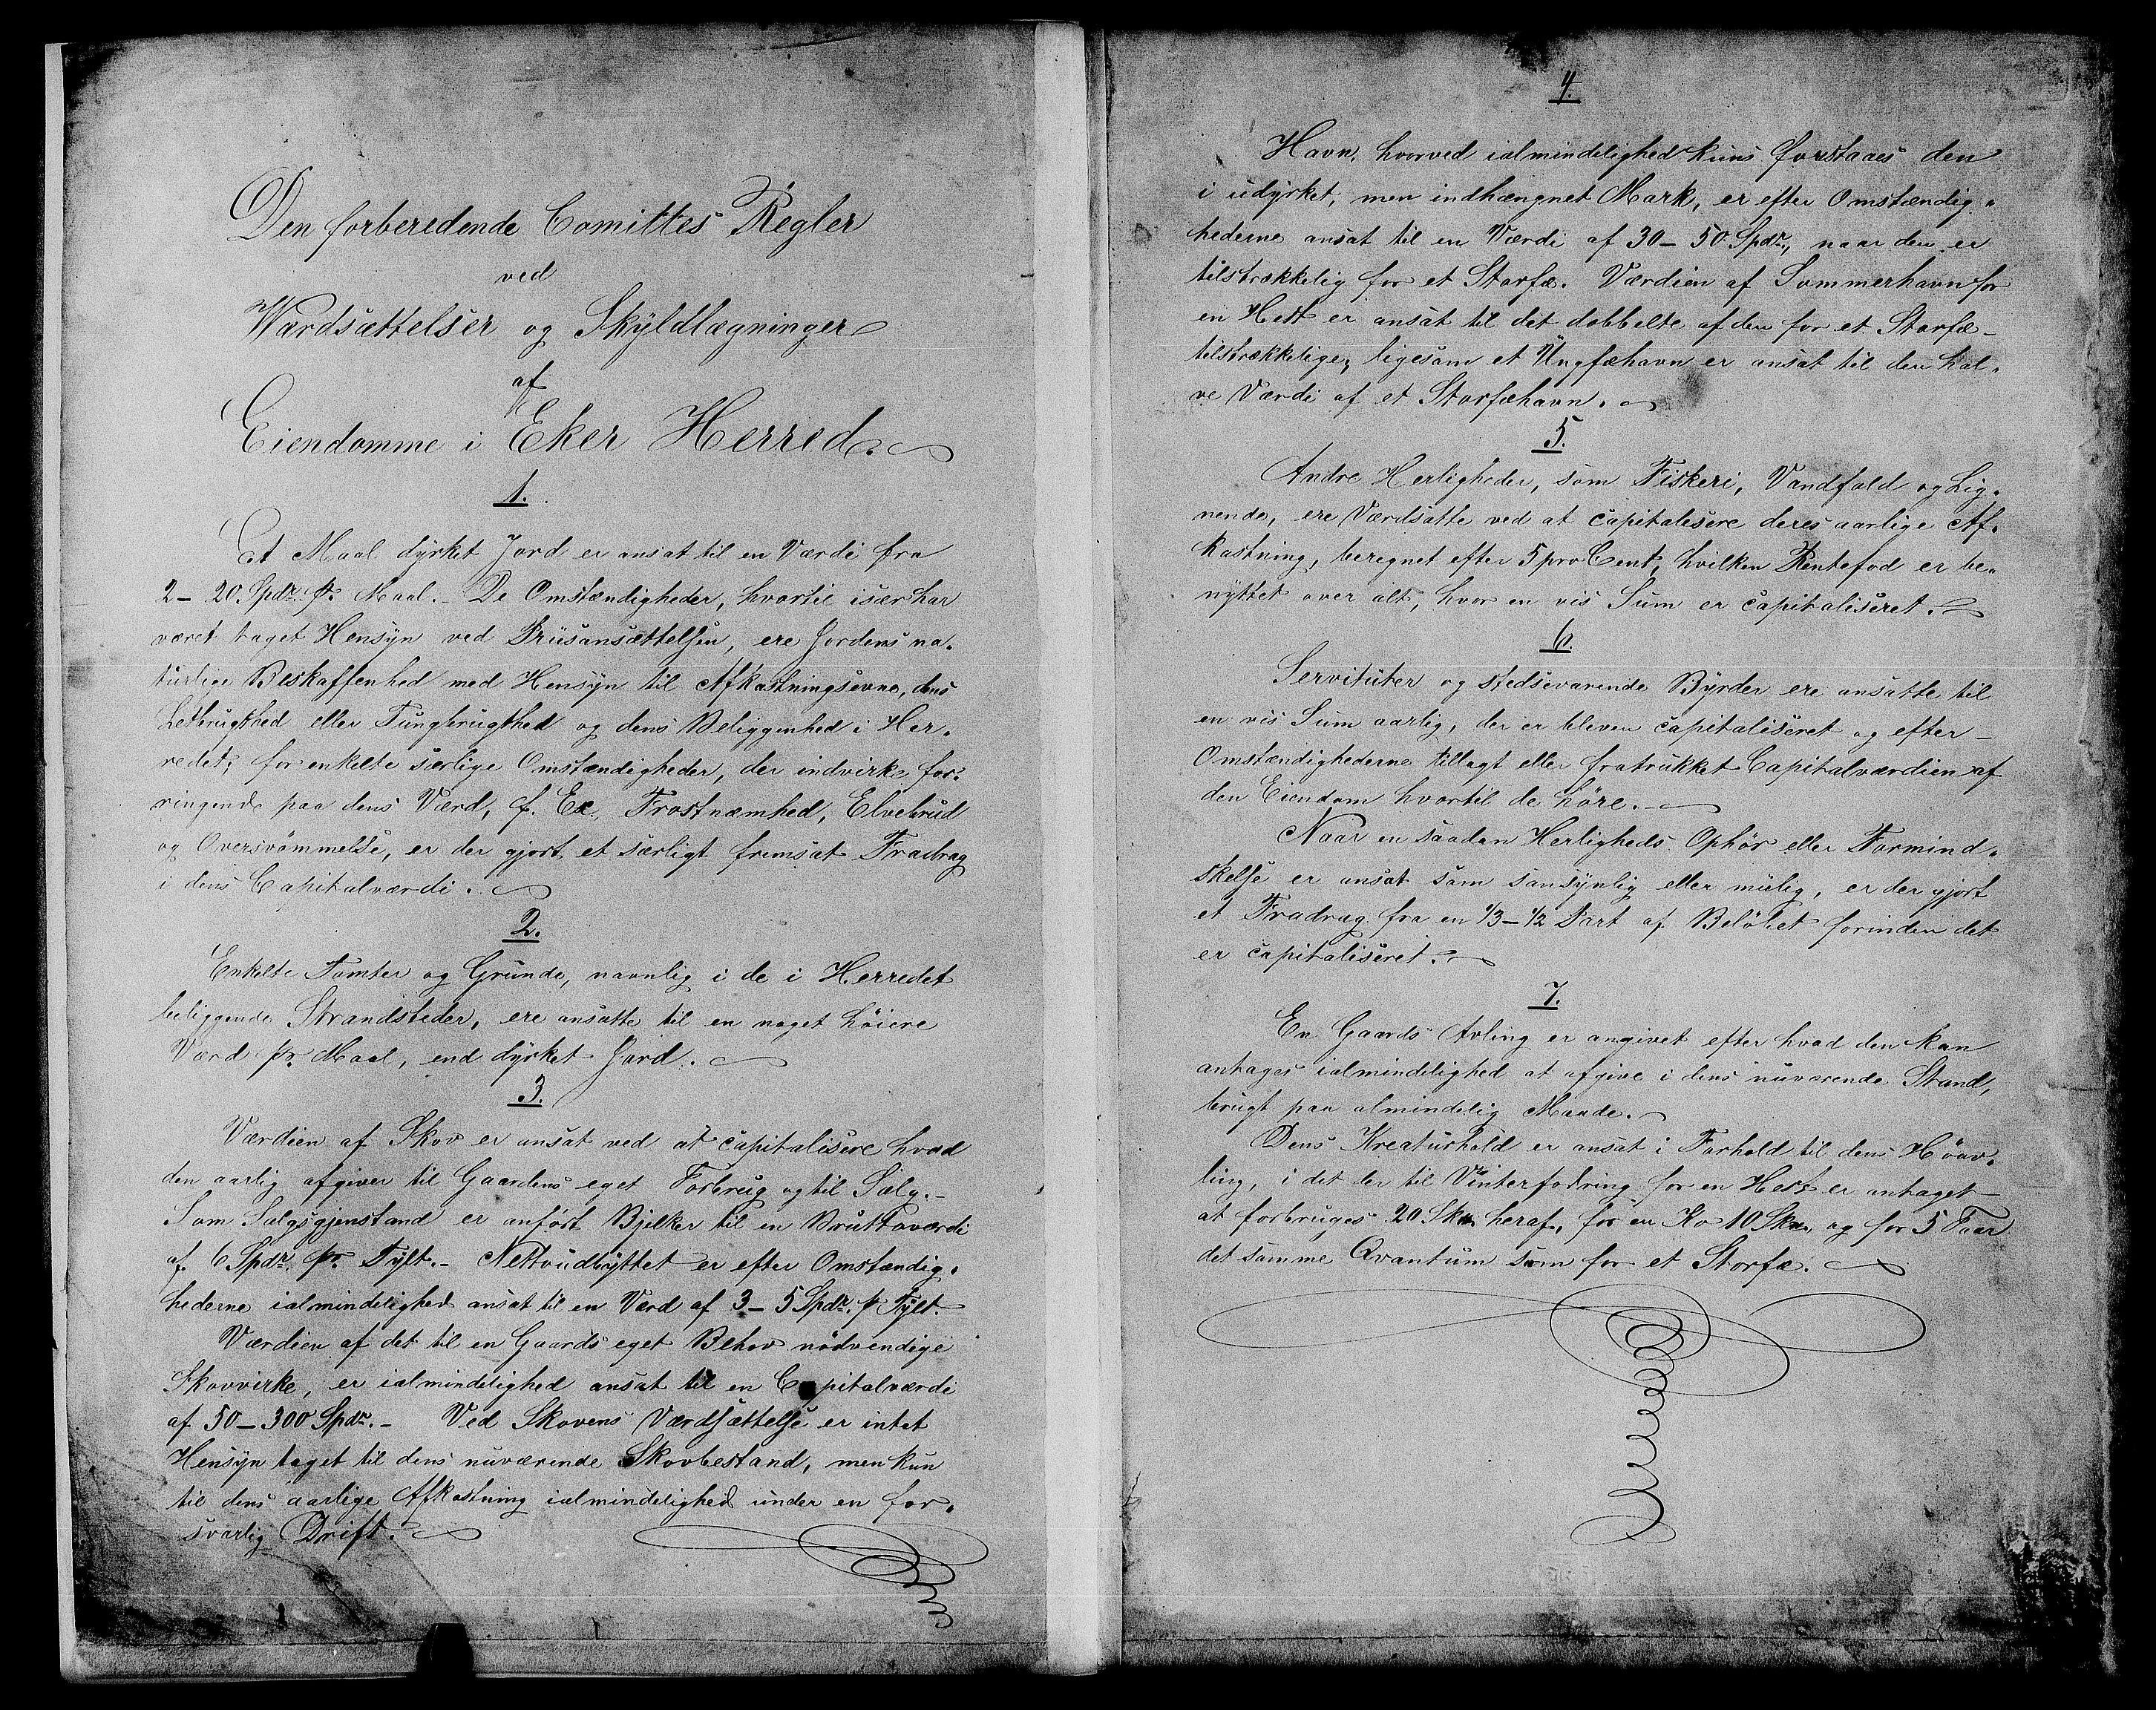 Den forberedende Comittes Regler
ved
Værdsættelser og Skyldlægninger
af
Eiendomme i Eker Herred.
1.
Et Maal dyrket Jord er ansat til en Værdi fra
2–20 Spdr. pr. Maal. – De Omstændigheder, hvortil især har
været taget Hensyn ved Priisansættelsen, ere Jordens na-
turlige Beskaffenhed med Hensyn til Afkastningsevne, dens
Letbrugthed eller Tungbrugthed og dens Beliggenhed i Her-
redet; for enkelte særlige Omstændigheder, der indvirke for-
ringende paa dens Værd, f. Ex. Frostnæmhed, Elvebrud
og Oversvømmelse, er der gjort et særligt fremsat Fradrag
i dens Capitalværdi.
2.
Enkelte Tomter og Grunde, navnlig i de i Herredet
beliggende Strandsteder, ere ansatte til en noget höiere
Værd pr. Maal, end dyrket Jord.
3.
Værdien af Skov er ansat ved at capitalisere hvad
den aarlig afgiver til Gaardens eget Forbrug og til Salg. –
Som Salgsgjenstand er anfört Bjelker til en Bruttoværdi
af 6 Spdr. pr. Tylt. – Nettoudbyttet er efter Omstændig-
hederne ialmindelighed ansat til en Værd af 3–5 Spdr. pr Tylt.
Værdien af det til en Gaards eget Behov nödvendige
Skovvirke, er ialmindelighed ansat til en Capitalværdi
af 50–300 Spdr. – Ved Skovens Værdsættelse er intet
Hensyn taget til dens nuværende Skovbestand, men kun
til dens aarlige Afkastning ialmindelighed under en for-
svarlig Drift.
4.
Havn, hvorved ialmindelighed kuns forstaaes den
i udyrket, men indhængnet Mark, er efter Omstændig-
hederne ansat til en Værdi af 30–50 Spdr., naar den er
tilstrækkelig for et Storfæ. Værdien af Sommerhavn for
en Hest er ansat til det dobbelte af den for et Storfæ
tilstrækkelige, ligesom et Ungfæhavn er ansat til den hal-
ve Værdi af et Storfæhavn.
5.
Andre Herligheder, som Fiskeri, Vandfald og Lig-
nende, ere Værdsatte ved at capitalisere deres aarlige Af-
kastning, beregnet efter 5 pro Cent, hvilken Rentefod er be-
nyttet over alt, hvor en vis Sum er capitaliseret.
6.
Servituter og stedsevarende Byrder ere ansatte til
en vis Sum aarlig, der er bleven capitaliseret og efter
Omstændighederne tillagt eller fratrukket Capitalværdien af
den Eiendom hvortil de höre. –
Naar en saadan Herligheds Ophör eller Formind-
skelse er ansat som sansynlig eller mulig, er der gjort
et Fradrag fra en 1/3–1/2 Part af Belöbet forinden det
er capitaliseret.
7.
En Gaards Avling er angivet efter hvad den kan
antages ialmindelighed at afgive i dens nuværende Stand,
brugt paa almindelig Maade.
Dens Kreaturhold er ansat i Forhold til dens Höav-
ling, i det der til Vinterfodring for en Hest er antaget
at forbruges 20 Sk℔ heraf, for en Ko 10 Sk℔, og for 5 Faar
det samme Qvantum som for et Storfæ.